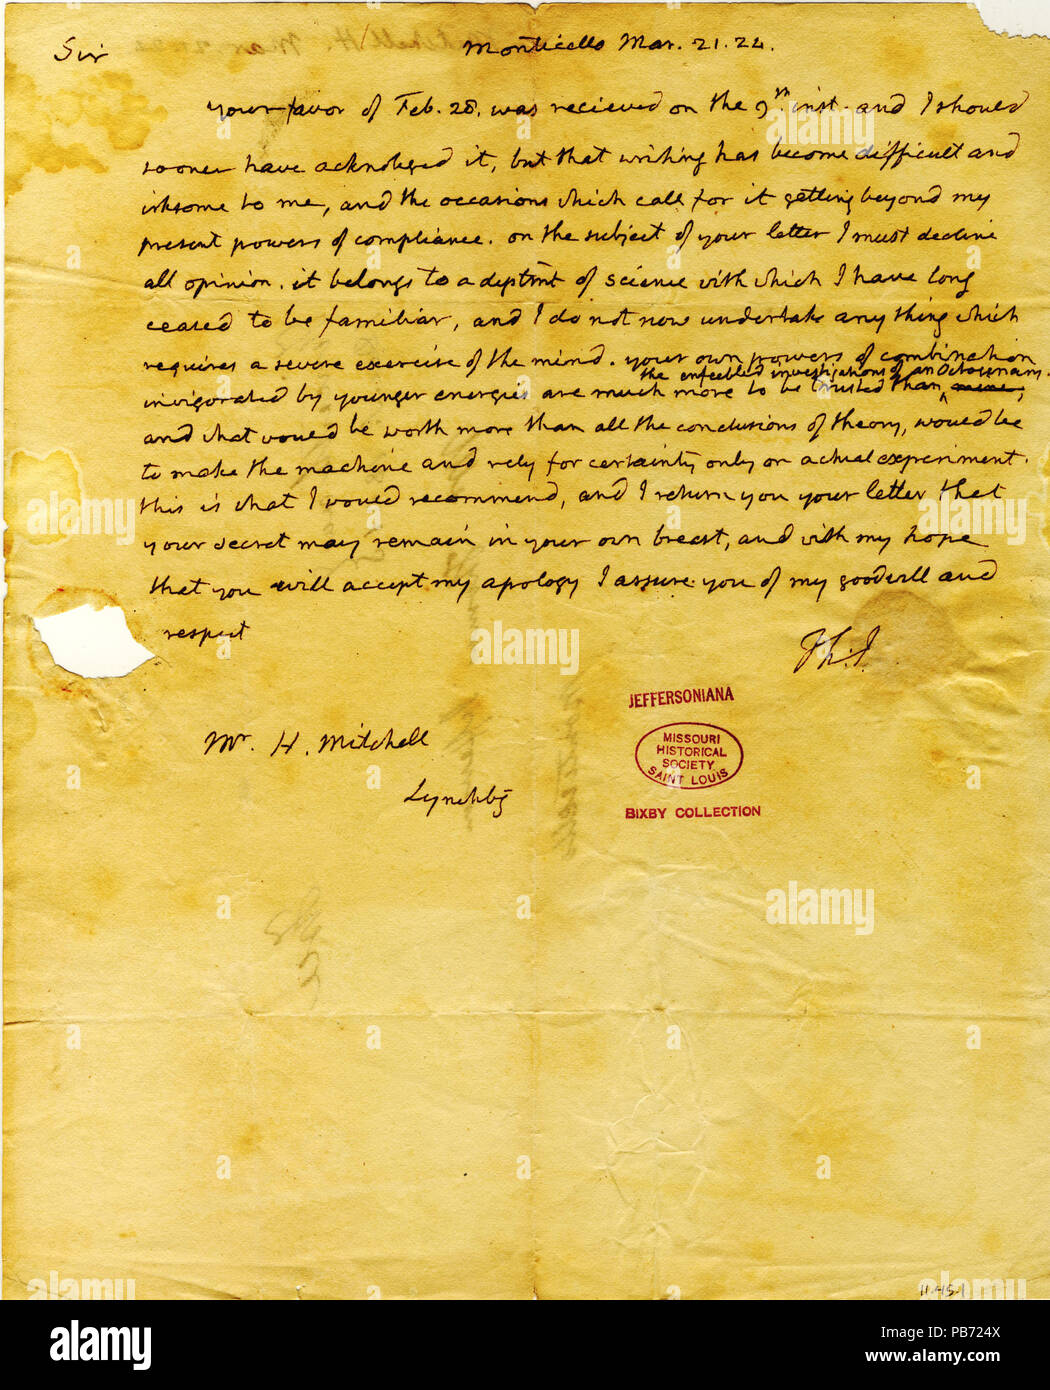 Sir Monticello Mar. 21. 24.
your favor of Feb. 28. was recieved on the 9th. inst. and I should
sooner have acknoleged it, but that writing has become difficult and
irksome to me, and the occasions which call for it getting beyond my
present powers of compliance. on the subject of your letter I must decline
all opinion. it belongs to a deptmt of science with which I have long
ceased to be familiar, and I do not now undertake any thing which
requires a severe exercise of the mind. your own powers of combination
the enfeebled investigations of an Octogenary.
invigorated by younger energies are much more to be trusted than ^ mine,
and what would be worth more than all the conclusions of theory, would be
to make the machine and rely for certainty only on actual experiment.
this is what I would recommend, and I return you your letter that
your secret may remain in your own breast, and with my hope
that you will accept my apology I assure you of my goodwill and
respect
Th: J.
JEFFERSONIANA
MISSOURI
HISTORICAL
SOCIETY
SAINT LOUIS
BIXBY COLLECTION
Mr. H. Mitchell
Lynchbg
11.45.1
alamy
Image ID: PB724X
www.alamy.com